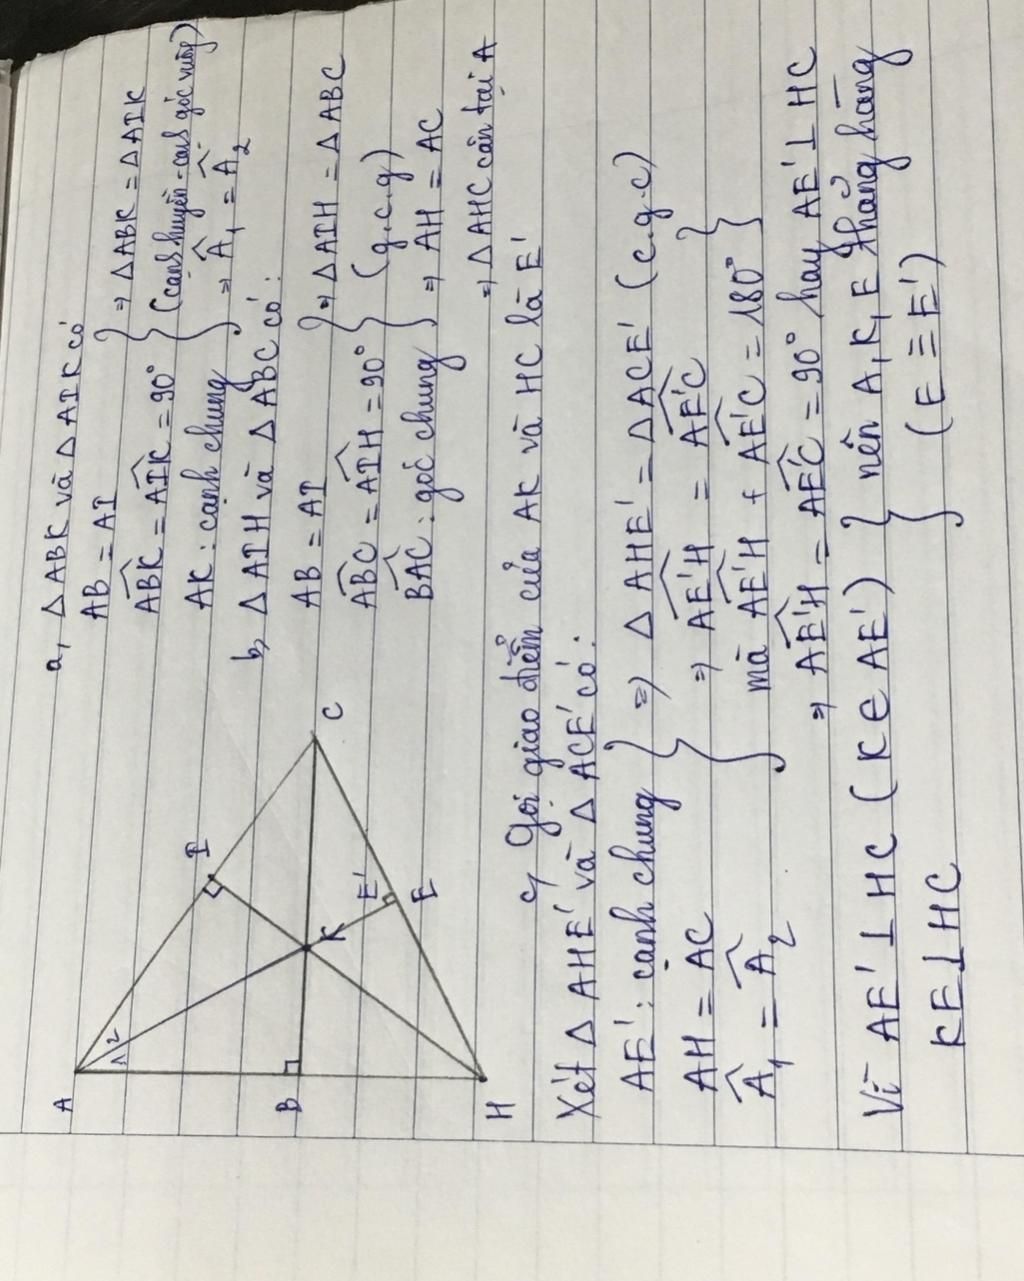 a, △ABK và △AIK có
AB = AI
$\widehat{ABK}$ = $\widehat{AIK}$ = 90°
AK : cạnh chung
⇒ △ABK = △AIK
(cạnh huyền - cạnh góc vuông)
⇒ $\widehat{A}_1$ = $\widehat{A}_2$
b, △AIH và △ABC có :
AB = AI
$\widehat{ABC}$ = $\widehat{AIH}$ = 90°
$\widehat{BAC}$ : góc chung
⇒ △AIH = △ABC
(g.c.g)
⇒ AH = AC
⇒ △AHC cân tại A
A
1 2
I
B
K
C
E'
E
H
c, Gọi giao điểm của AK và HC là E'
Xét △AHE' và △ACE' có :
AE' : cạnh chung
AH = AC
$\widehat{A}_1$ = $\widehat{A}_2$
⇒ △AHE' = △ACE' (c.g.c)
⇒ $\widehat{AE'H}$ = $\widehat{AE'C}$
mà $\widehat{AE'H}$ + $\widehat{AE'C}$ = 180°
⇒ $\widehat{AE'H}$ = $\widehat{AE'C}$ = 90° hay AE' ⊥ HC
Vì AE' ⊥ HC (K ∈ AE')
KE ⊥ HC
nên A, K, E thẳng hàng
(E ≡ E')